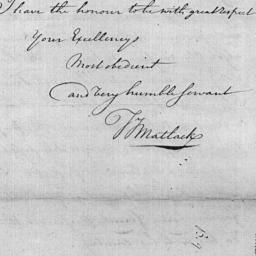 I have the honour to be with great respect
Your Excellencys
Most obedient
and very humble Servant
T Matlack